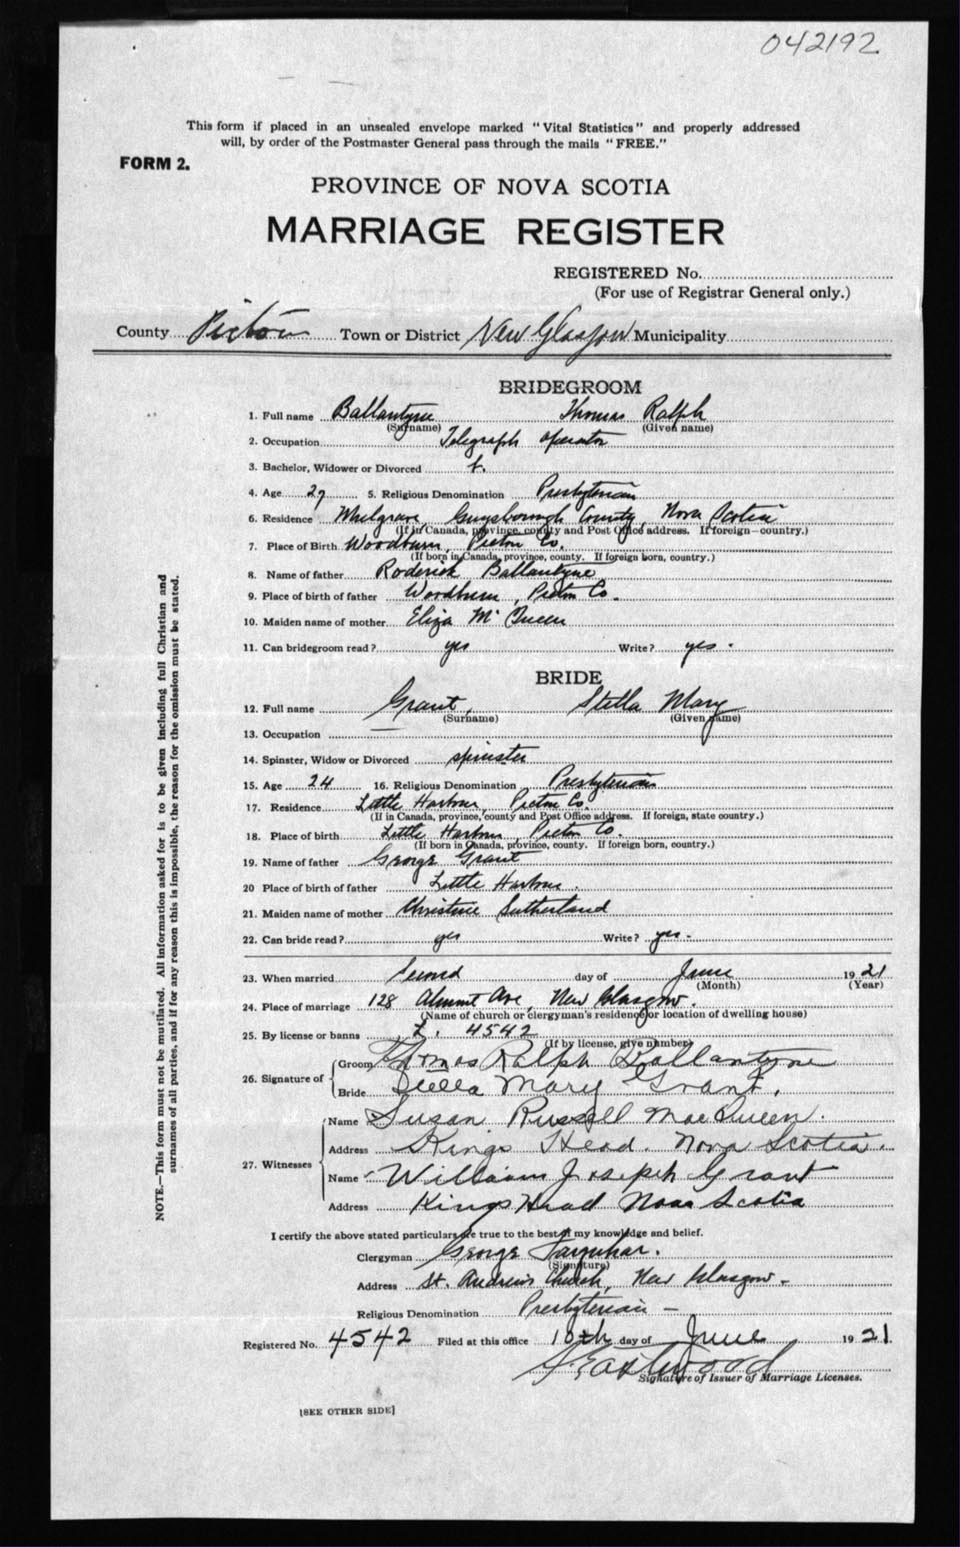 042192
This form if placed in an unsealed envelope marked "Vital Statistics" and properly addressed
will, by order of the Postmaster General pass through the mails "FREE."
FORM 2.
PROVINCE OF NOVA SCOTIA
MARRIAGE REGISTER
REGISTERED No.
(For use of Registrar General only.)
County Pictou Town or District New Glasgow Municipality
BRIDEGROOM
1. Full name Ballantyne Thomas Ralph
(Surname) (Given name)
2. Occupation Telegraph operator
3. Bachelor, Widower or Divorced
4. Age 27 5. Religious Denomination Presbyterian
6. Residence Mulgrave, Guysborough County, Nova Scotia
(If in Canada, province, county and Post Office address. If foreign—country.)
7. Place of Birth Woodburn, Pictou Co.
(If born in Canada, province, county. If foreign born, country.)
8. Name of father Roderick Ballantyne
9. Place of birth of father Woodburn, Pictou Co.
10. Maiden name of mother Eliza McQueen
11. Can bridegroom read? yes Write? yes.
BRIDE
12. Full name Grant, Stella Mary
(Surname) (Given name)
13. Occupation
14. Spinster, Widow or Divorced spinster
15. Age 24 16. Religious Denomination Presbyterian
17. Residence Little Harbour, Pictou Co.
(If in Canada, province, county and Post Office address. If foreign, state country.)
18. Place of birth Little Harbour, Pictou Co.
(If born in Canada, province, county. If foreign born, country.)
19. Name of father George Grant
20 Place of birth of father Little Harbour.
21. Maiden name of mother Christene Sutherland
22. Can bride read? yes Write? yes.
23. When married Second day of June 1921
(Month) (Year)
24. Place of marriage 128 Ave, New Glasgow.
(Name of church or clergyman's residence or location of dwelling house)
25. By license or banns L. 4542
(If by license, give number)
26. Signature of Groom Thomas Ralph Ballantyne
Bride Stella Mary Grant.
27. Witnesses Name Susan Russell MacQueen.
Address Kings Head. Nova Scotia.
Name William Joseph Grant
Address Kings Head Nova Scotia
I certify the above stated particulars are true to the best of my knowledge and belief.
Clergyman George Farquhar.
(Signature)
Address St. Andrews Church, New Glasgow.
Religious Denomination Presbyterian
Registered No. 4542 Filed at this office 10th day of June 1921
Eastwood
Signature of Issuer of Marriage Licenses.
[SEE OTHER SIDE]
NOTE.—This form must not be mutilated. All information asked for is to be given including full Christian and
surnames of all parties, and if for any reason this is impossible, the reason for the omission must be stated.